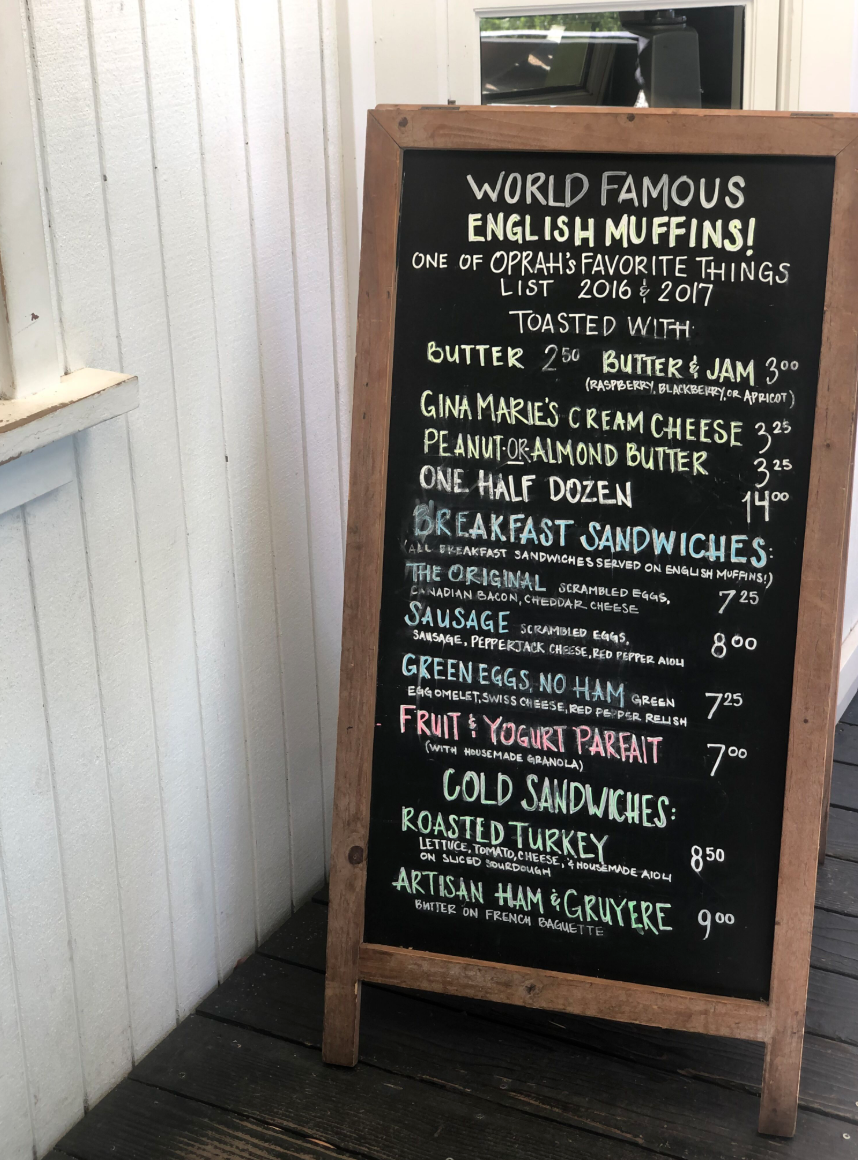 WORLD FAMOUS
ENGLISH MUFFINS!
ONE OF OPRAH'S FAVORITE THINGS
LIST 2016 & 2017
TOASTED WITH
BUTTER 2⁵⁰ BUTTER & JAM 3⁰⁰
(RASPBERRY, BLACKBERRY, OR APRICOT)
GINA MARIE'S CREAM CHEESE 3²⁵
PEANUT-OR-ALMOND BUTTER 3²⁵
ONE HALF DOZEN 14⁰⁰
BREAKFAST SANDWICHES:
(ALL BREAKFAST SANDWICHES SERVED ON ENGLISH MUFFINS!)
THE ORIGINAL SCRAMBLED EGGS, 7²⁵
CANADIAN BACON, CHEDDAR CHEESE
SAUSAGE SCRAMBLED EGGS, 8⁰⁰
SAUSAGE, PEPPERJACK CHEESE, RED PEPPER AIOLI
GREEN EGGS, NO HAM GREEN 7²⁵
EGG OMELET, SWISS CHEESE, RED PEPPER RELISH
FRUIT & YOGURT PARFAIT 7⁰⁰
(WITH HOUSEMADE GRANOLA)
COLD SANDWICHES:
ROASTED TURKEY 8⁵⁰
LETTUCE, TOMATO, CHEESE, & HOUSEMADE AIOLI
ON SLICED SOURDOUGH
ARTISAN HAM & GRUYERE 9⁰⁰
BUTTER ON FRENCH BAGUETTE